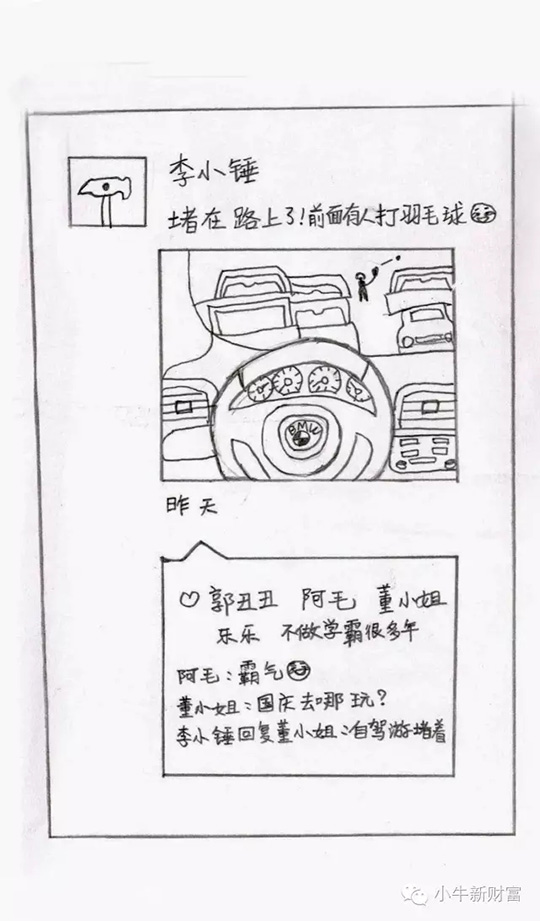 李小锤
堵在路上了!前面有人打羽毛球
BMW
昨天
郭丑丑 阿毛 董小姐
乐乐 不做学霸很多年
阿毛:霸气
董小姐:国庆去哪玩?
李小锤回复董小姐:自驾游堵着
小牛新财富